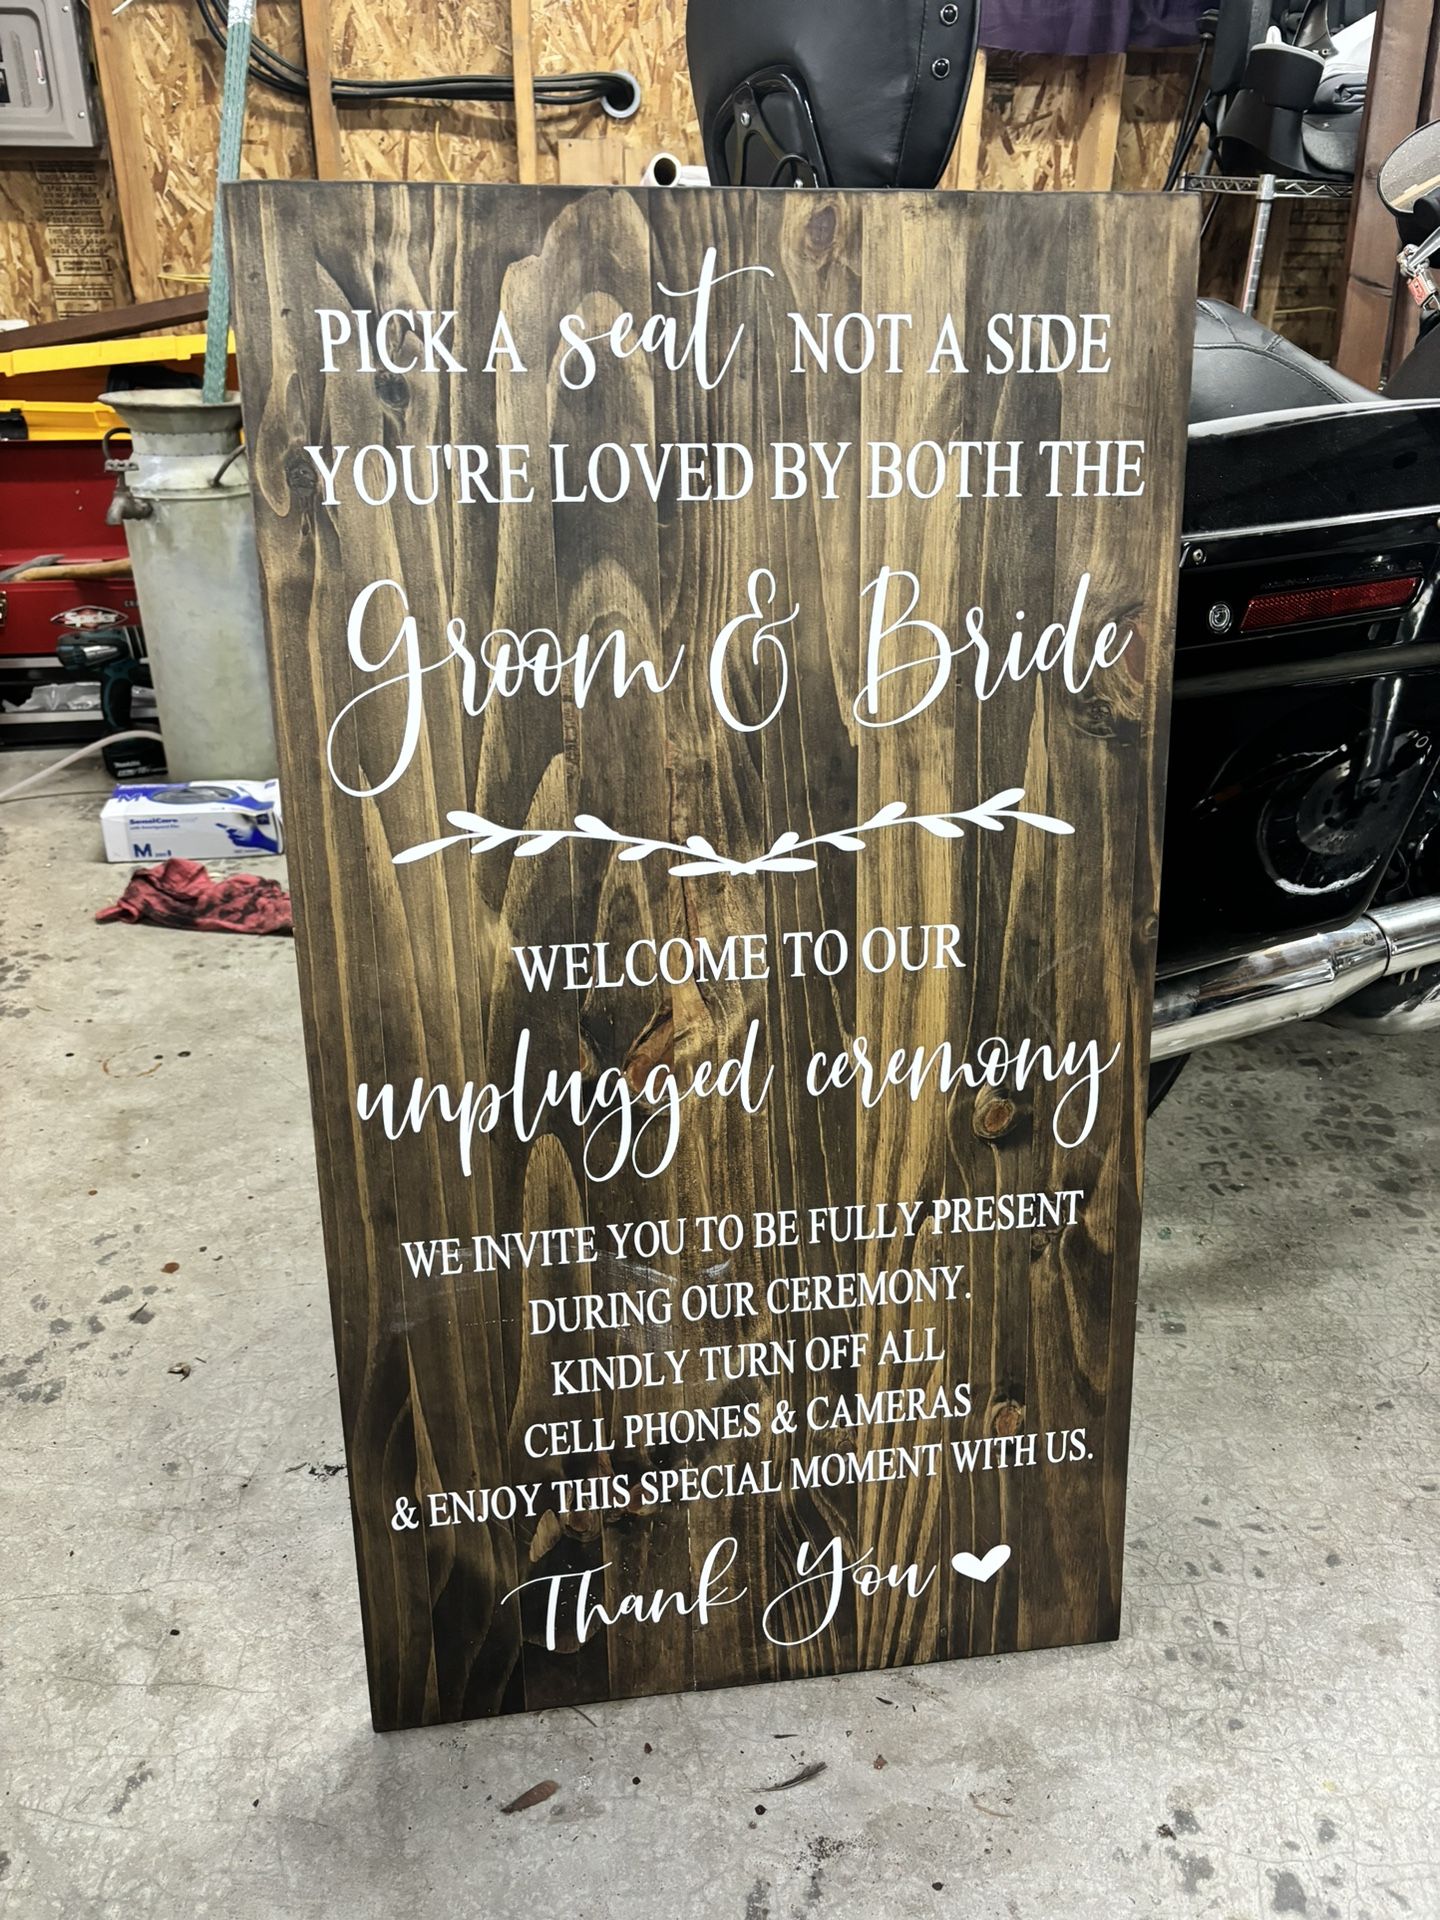 PICK A seat NOT A SIDE
YOU'RE LOVED BY BOTH THE
Groom & Bride
WELCOME TO OUR
unplugged ceremony
WE INVITE YOU TO BE FULLY PRESENT
DURING OUR CEREMONY.
KINDLY TURN OFF ALL
CELL PHONES & CAMERAS
& ENJOY THIS SPECIAL MOMENT WITH US.
Thank You
SensiCare
M
makita